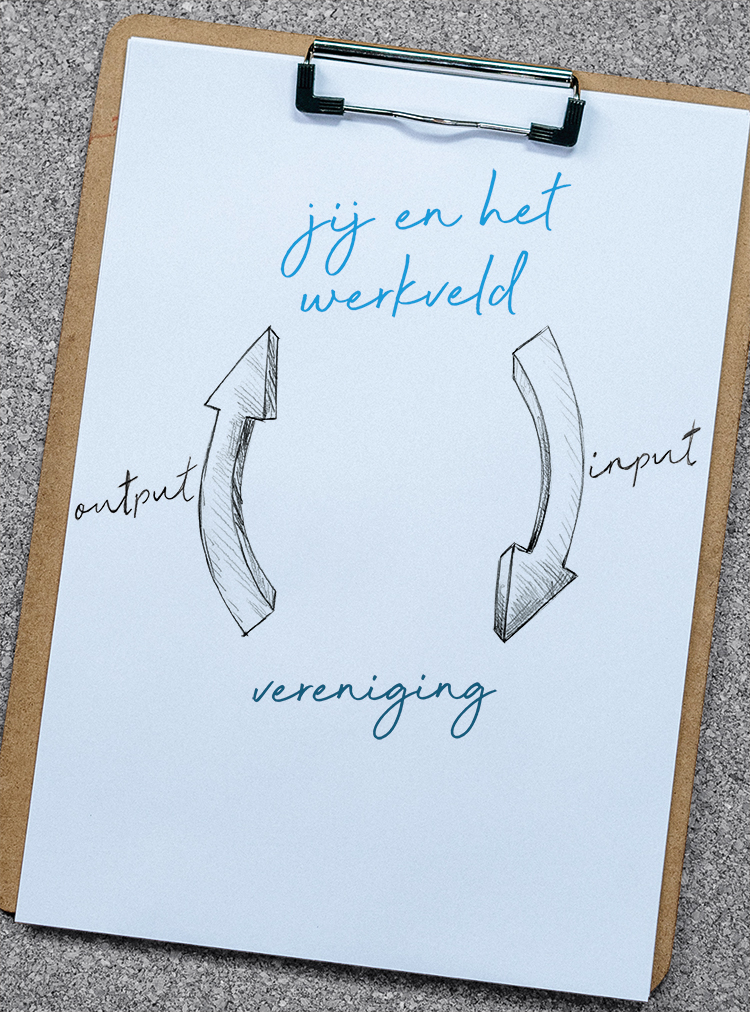 jij en het
werkveld
output
input
vereniging